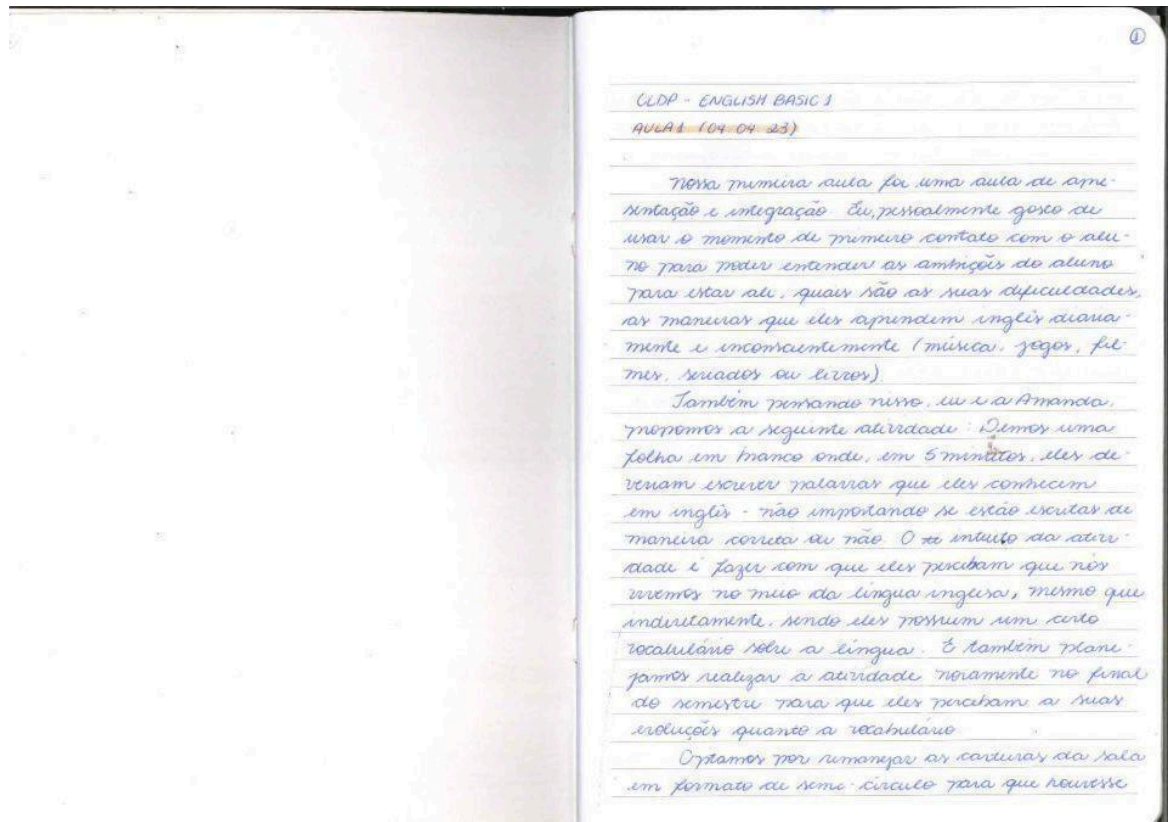 ①
CLDP - ENGLISH BASIC 1
AULA 1 (04 04 23)
Nossa primeira aula foi uma aula de apre-
sentação e integração. Eu, pessoalmente gosto de
usar o momento de primeiro contato com o alu-
no para poder entender as ambições do aluno
para estar ali, quais são as suas dificuldades,
as maneiras que eles aprendem inglês diaria-
mente e inconscientemente (música, jogos, fil-
mes, seriados ou livros)
Também pensando nisso, eu e a Amanda,
propomos a seguinte atividade: Demos uma
folha em branco onde, em 5 minutos, eles de-
veriam escrever palavras que eles conhecem
em inglês - não importando se estão escritas de
maneira correta ou não. O intuito da ativi-
dade é fazer com que eles percebam que nós
vivemos no meio da língua inglesa, mesmo que
indiretamente, sendo eles possuem um certo
vocabulário sobre a língua. E também plane-
jamos realizar a atividade novamente no final
do semestre para que eles percebam a suas
evoluções quanto a vocabulário
Optamos por remanejar as carteiras da sala
em formato de semi-círculo para que houvesse